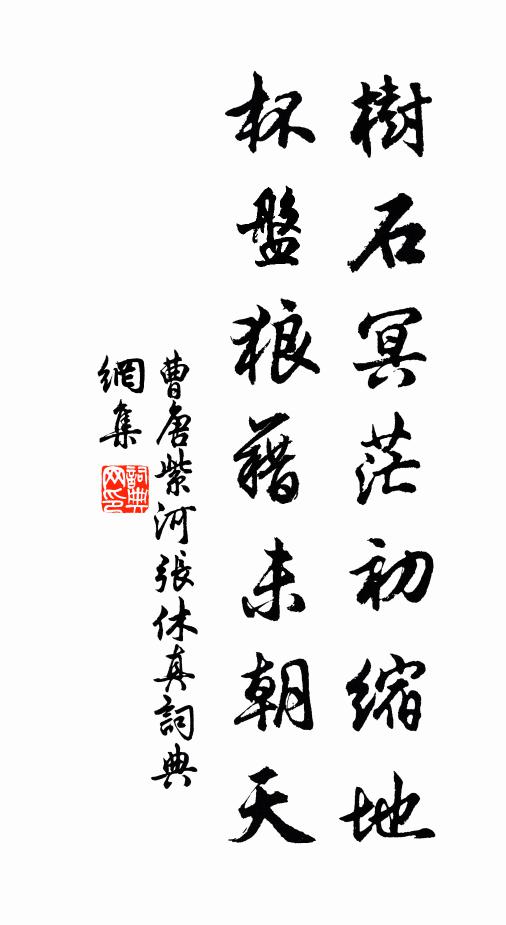 樹石冥茫初縮地
杯盤狼藉未朝天
曹唐紫河張休真詞典
網集
詞典
网印